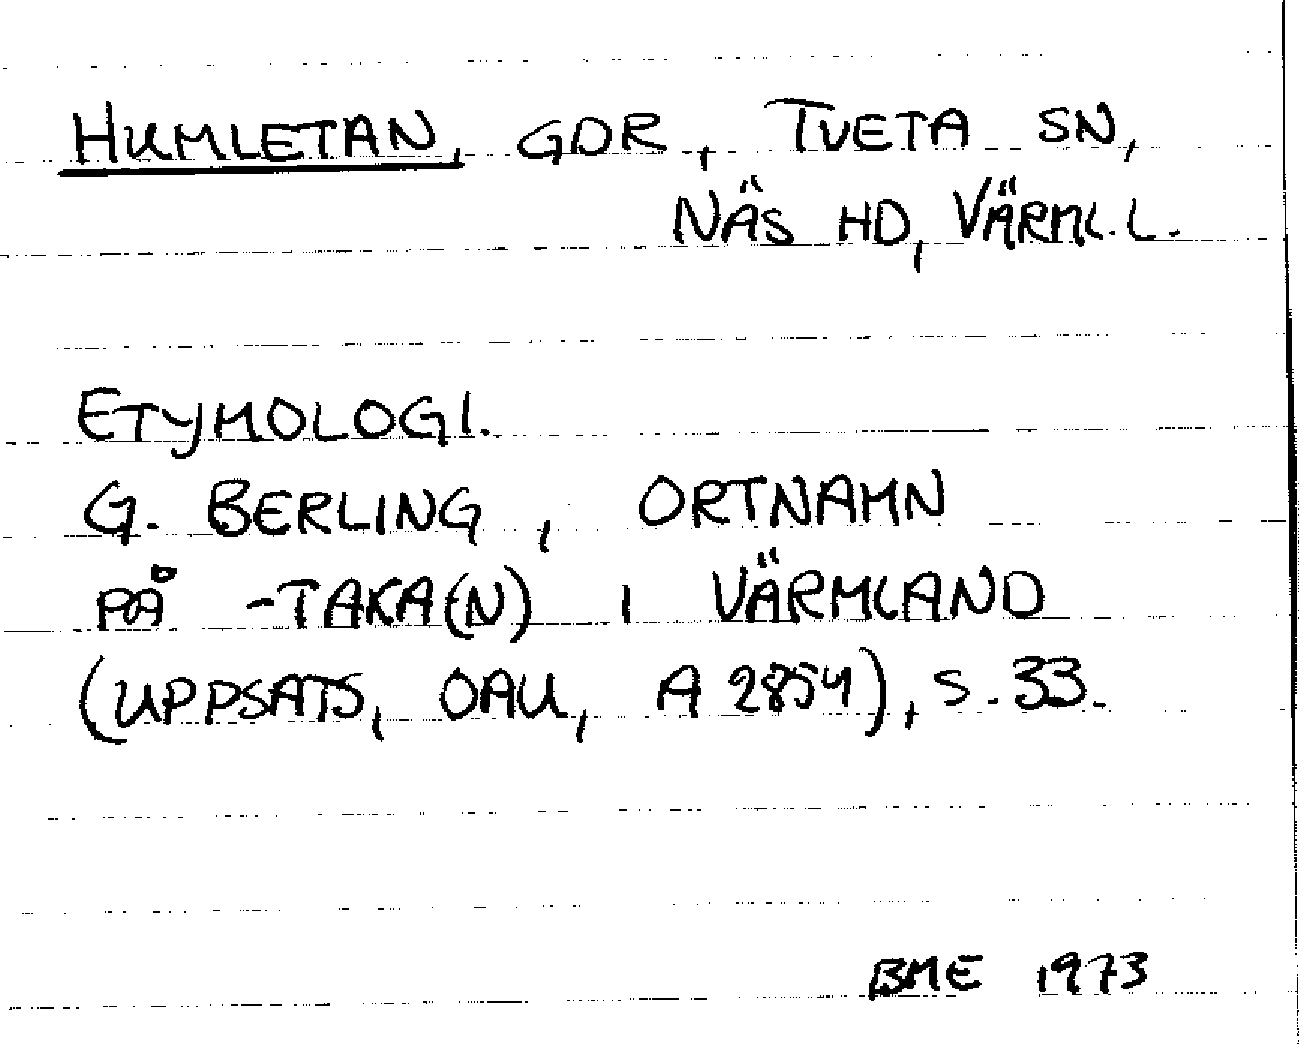 HUMLETAN, GDR, TVETA SN,
NÄS HD, VÄRML. L.
ETYMOLOGI.
G. BERLING, ORTNAMN
PÅ -TAKA(N) I VÄRMLAND
(UPPSATS, OAU, A 2854), S. 33.
BME 1973